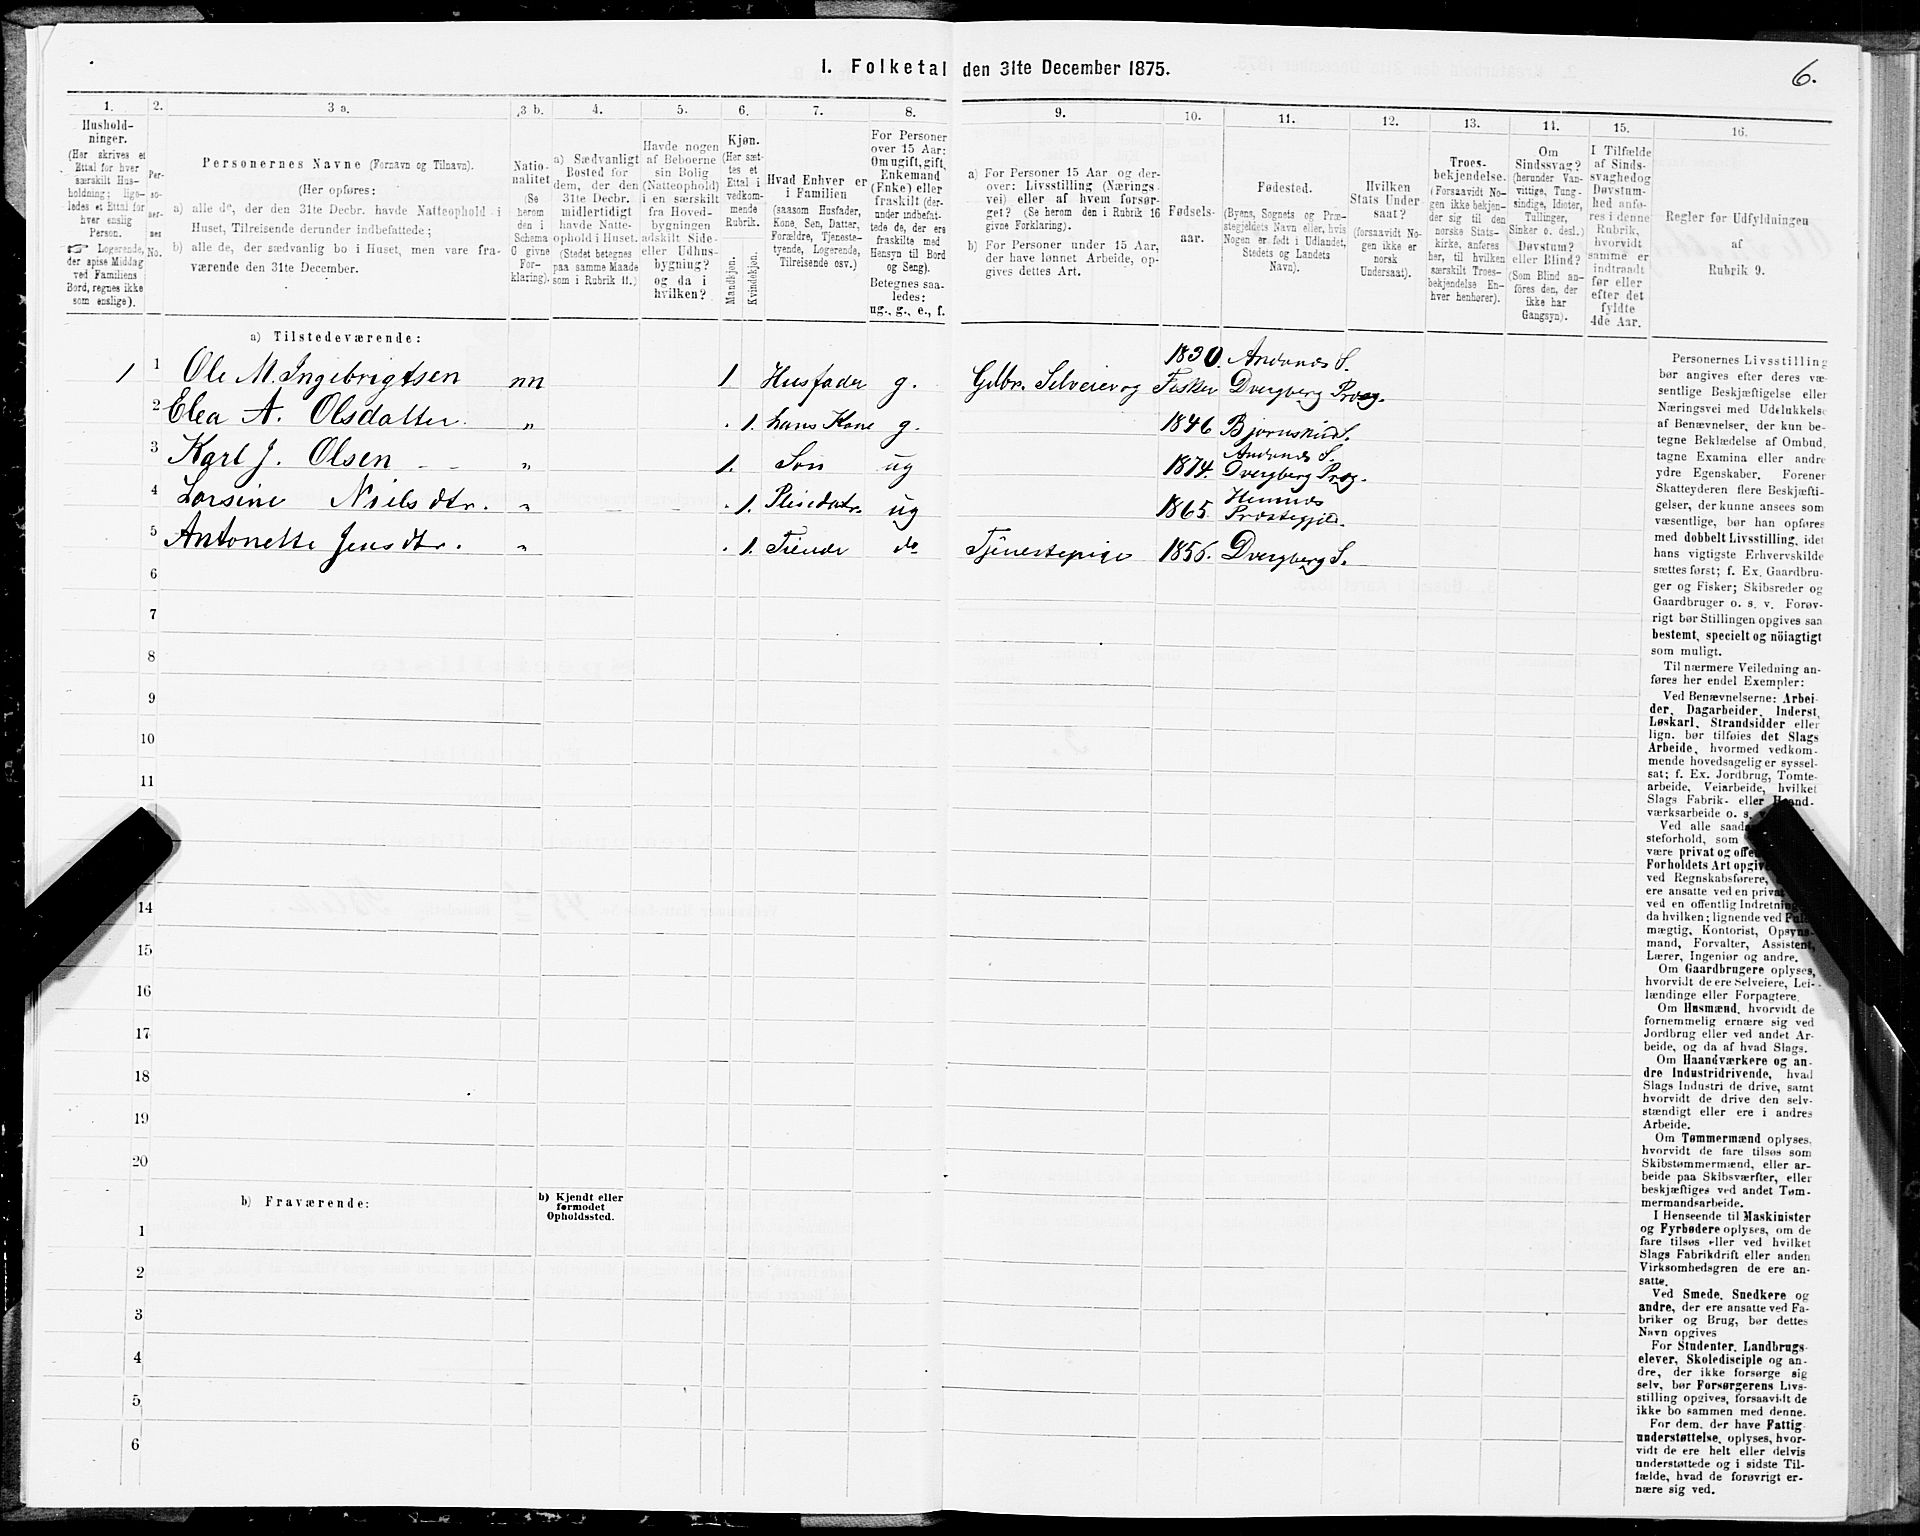 1. Folketal den 31te December 1875.
6.
1.
2.
3 a.
3 b.
4.
5.
6.
7.
8.
9.
10.
11.
12.
13.
14.
15.
16.
Hushold-
ninger.
(Her skrives et
Ettal for hver
særskilt Hus-
holdning; lige-
ledes et Ettal for
hver enslig
Person.
☞ Logerende,
der spise Middag
ved Familiens
Bord, regnes ikke
som enslige).
Per-
so-
ner-
nes
No.
Personernes Navne (Fornavn og Tilnavn).
(Her opføres:
a) alle de, der den 31te Decbr. havde Natteophold i
Huset, Tilreisende derunder indbefattede;
b) alle de, der sædvanlig bo i Huset, men vare fra-
værende den 31te December.
Natio-
nalitet
(Se
herom
den i
Schema
O givne
For-
klaring).
a) Sædvanligt
Bosted for
dem, der den
31te Decbr.
midlertidigt
havde Natte-
ophold i Huset.
(Stedet betegnes
paa samme Maade
som i Rubrik 11.)
Havde nogen
af Beboerne
sin Bolig
(Natteophold)
i en særskilt
fra Hoved-
bygningen
adskilt Side-
eller Udhus-
bygning?
og da i
hvilken?
Kjøn.
(Her sæt-
tes et
Ettal i
vedkom-
mende
Rubrik.
Mandkjøn.
Kvindekjøn.
Hvad Enhver er
i Familien
(saasom Husfader,
Kone, Søn, Datter,
Forældre, Tjeneste-
tyende, Logerende,
Tilreisende osv.)
For Personer
over 15 Aar:
Om ugift, gift,
Enkemand
(Enke) eller
fraskilt (der-
under indbefat-
tede de, der ere
fraskilte med
Hensyn til Bord
og Seng).
Betegnes saa-
ledes:
ug., g., e., f.
a) For Personer 15 Aar og der-
over: Livsstilling (Nærings-
vei) eller af hvem forsør-
get? (Se herom den i Rubrik 16
givne Forklaring).
b) For Personer under 15 Aar,
der have lønnet Arbeide, op-
gives dettes Art.
Fødsels-
aar.
Fødested.
(Byens, Sognets og Præ-
stegjeldets Navn eller, hvis
Nogen er født i Udlandet,
Stedets og Landets
Navn).
Hvilken
Stats Under
saat?
(forsaavidt No-
gen ikke er
norsk
Undersaat).
Troes-
bekjendelse.
(Forsaavidt No-
gen ikke bekjen-
der sig til den
norske Stats-
kirke, anføres
her, til hvilken
særskilt Troes-
bekjendelse En-
hver henhører).
Om
Sindssvag?
(herunder Van-
vittige, Tung-
sindige, Idioter,
Tullinger,
Sinker o. desl.)
Døvstum?
eller Blind?
(Som Blind an-
føres den, der
ikke har
Gangsyn).
I Tilfælde
af Sinds-
svaghed og
Døvstum-
hed anfø-
res i denne
Rubrik,
hvorvidt
samme er
indtraadt
før eller
efter det
fyldte
4de Aar.
Regler for Udfyldningen
af
Rubrik 9.
a) Tilstedeværende:
1 1 Ole M. Ingebrigtsen nn 1 Husfader g. Gdbr. Selveier og Fisker 1830. Andenæs S. Dvergberg Præg.
2 Elea A. Olsdatter. " . 1. hans Kone g. 1846 Bjørnskin S.
3 Karl J. Olsen - - " 1. Søn ug 1874. Andenæs S. Dvergberg Præg.
4 Lorsine Nielsdtr. " . 1. Pleiedatr. ug 1865 Hemnæs Præstegjeld.
5 Antonette Jensdtr. " . 1. Tiende do Tjenestepige 1856. Dvergberg S.
6
7
8
9
10
11
14
15
16
17
18
19
20
b) Fraværende:
b) Kjendt eller
formodet
Opholdssted.
1
2
3
4
5
6
Personernes Livsstilling
bør angives efter deres væ-
sentlige Beskjæftigelse eller
Næringsvei med Udelukkelse
af Benævnelser, der kun be-
tegne Beklædelse af Ombud,
tagne Examina eller andre
ydre Egenskaber. Forener
Skatteyderen flere Beskjæfti-
gelser, der kunne ansees som
væsentlige, bør han opføres
med dobbelt Livsstilling, idet
hans vigtigste Erhvervskilde
sættes først; f. Ex. Gaardbru-
ger og Fisker; Skibsreder og
Gaardbruger o. s. v. Forøv-
rigt bør Stillingen opgives saa
bestemt, specielt og nöiagtigt
som muligt.
Til nærmere Veiledning an-
føres her endel Exempler:
Ved Benævnelserne: Arbei-
der, Dagarbeider, Inderst,
Løskarl, Strandsidder eller
lign. bør tilføies det Slags
Arbeide, hvormed vedkom-
mende hovedsagelig er syssel-
sat; f. Ex. Jordbrug, Tomte-
arbeide, Veiarbeide, hvilket
Slags Fabrik- eller Haand-
værksarbeide o. s.
Ved alle saada
steforhold, som
være privat og offe
Forholdets Art opgiv
ved Regnskabsførere,
ere ansatte ved en privat
ved en offentlig Indretning
da hvilken; lignende ved Fuld-
mægtig, Kontorist, Opsyns-
mand, Forvalter, Assistent,
Lærer, Ingeniør og andre.
Om Gaardbrugere oplyses,
hvorvidt de ere Selveiere, Lei-
lændinge eller Forpagtere.
Om Husmænd, hvorvidt de
fornemmelig ernære sig ved
Jordbrug eller ved andet Ar-
beide, og da af hvad Slags.
Om Haandværkere og an-
dre Industridrivende, hvad
Slags Industri de drive, samt
hvorvidt de drive den selv-
stændigt eller ere i andres
Arbeide.
Om Tømmermænd oplyses,
hvorvidt de fare tilsøs som
Skibstømmermænd, eller ar-
beide paa Skibsværfter, eller
beskjæftiges ved andet Tøm-
mermandsarbeide.
I Henseende til Maskinister
og Fyrbødere oplyses, om de
fare tilsøs eller ved hvilket
Slags Fabrikdrift eller anden
Virksomhedsgren de ere an-
satte.
Ved Smede, Snedkere og
andre, der ere ansatte ved Fa-
briker og Brug, bør dettes
Navn opgives
For Studenter, Landbrugs-
elever, Skoledisciple og an-
dre, der ikke forsørge sig
selv, bør Forsørgerens Livs-
stilling opgives, forsaavidt de
ikke bo sammen med denne.
For dem, der have Fattig-
understøttelse, oplyses, hvor-
vidt de ere helt eller delvis
understøttede og i sidste Til-
fælde, hvad de forøvrigt er-
nære sig ved.